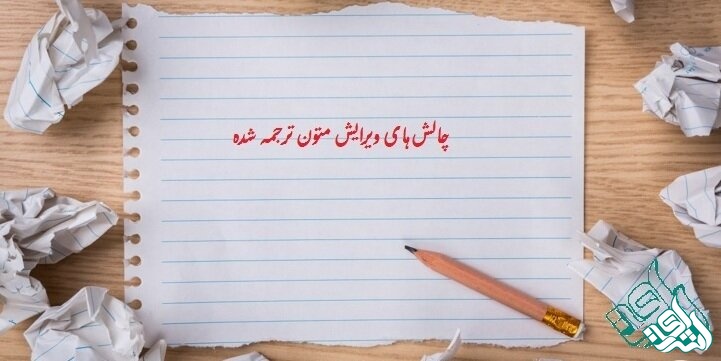 چالش های ویرایش متون ترجمه شده